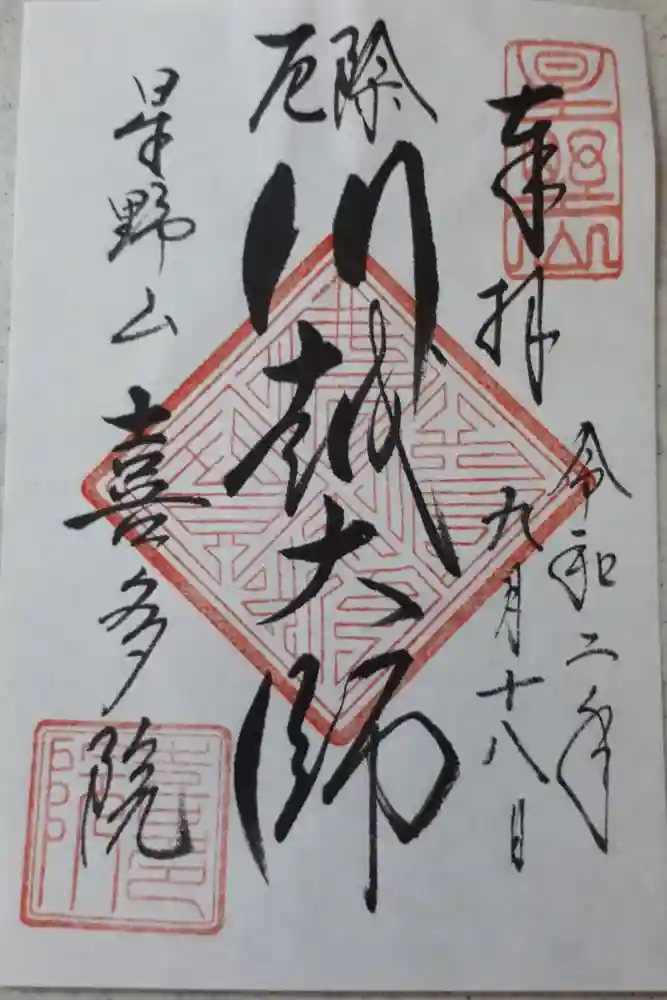 奉拝
令和二年
九月十八日
厄除
川越大師
星野山
喜多院
星野山